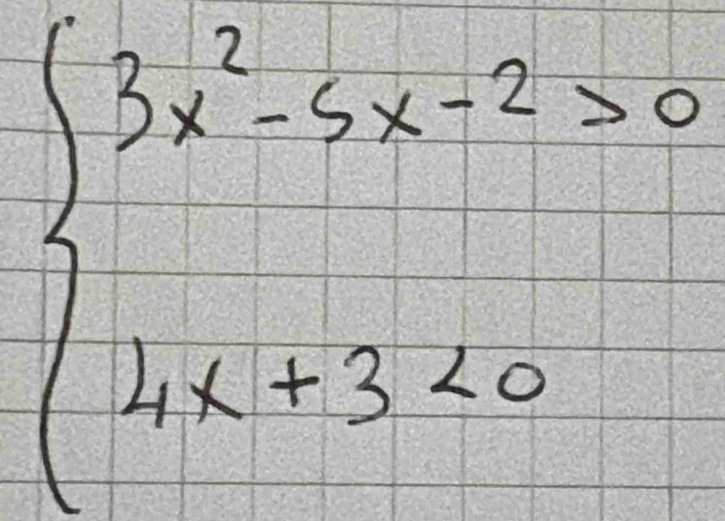 3x² - 5x - 2 > 0
4x + 3 < 0